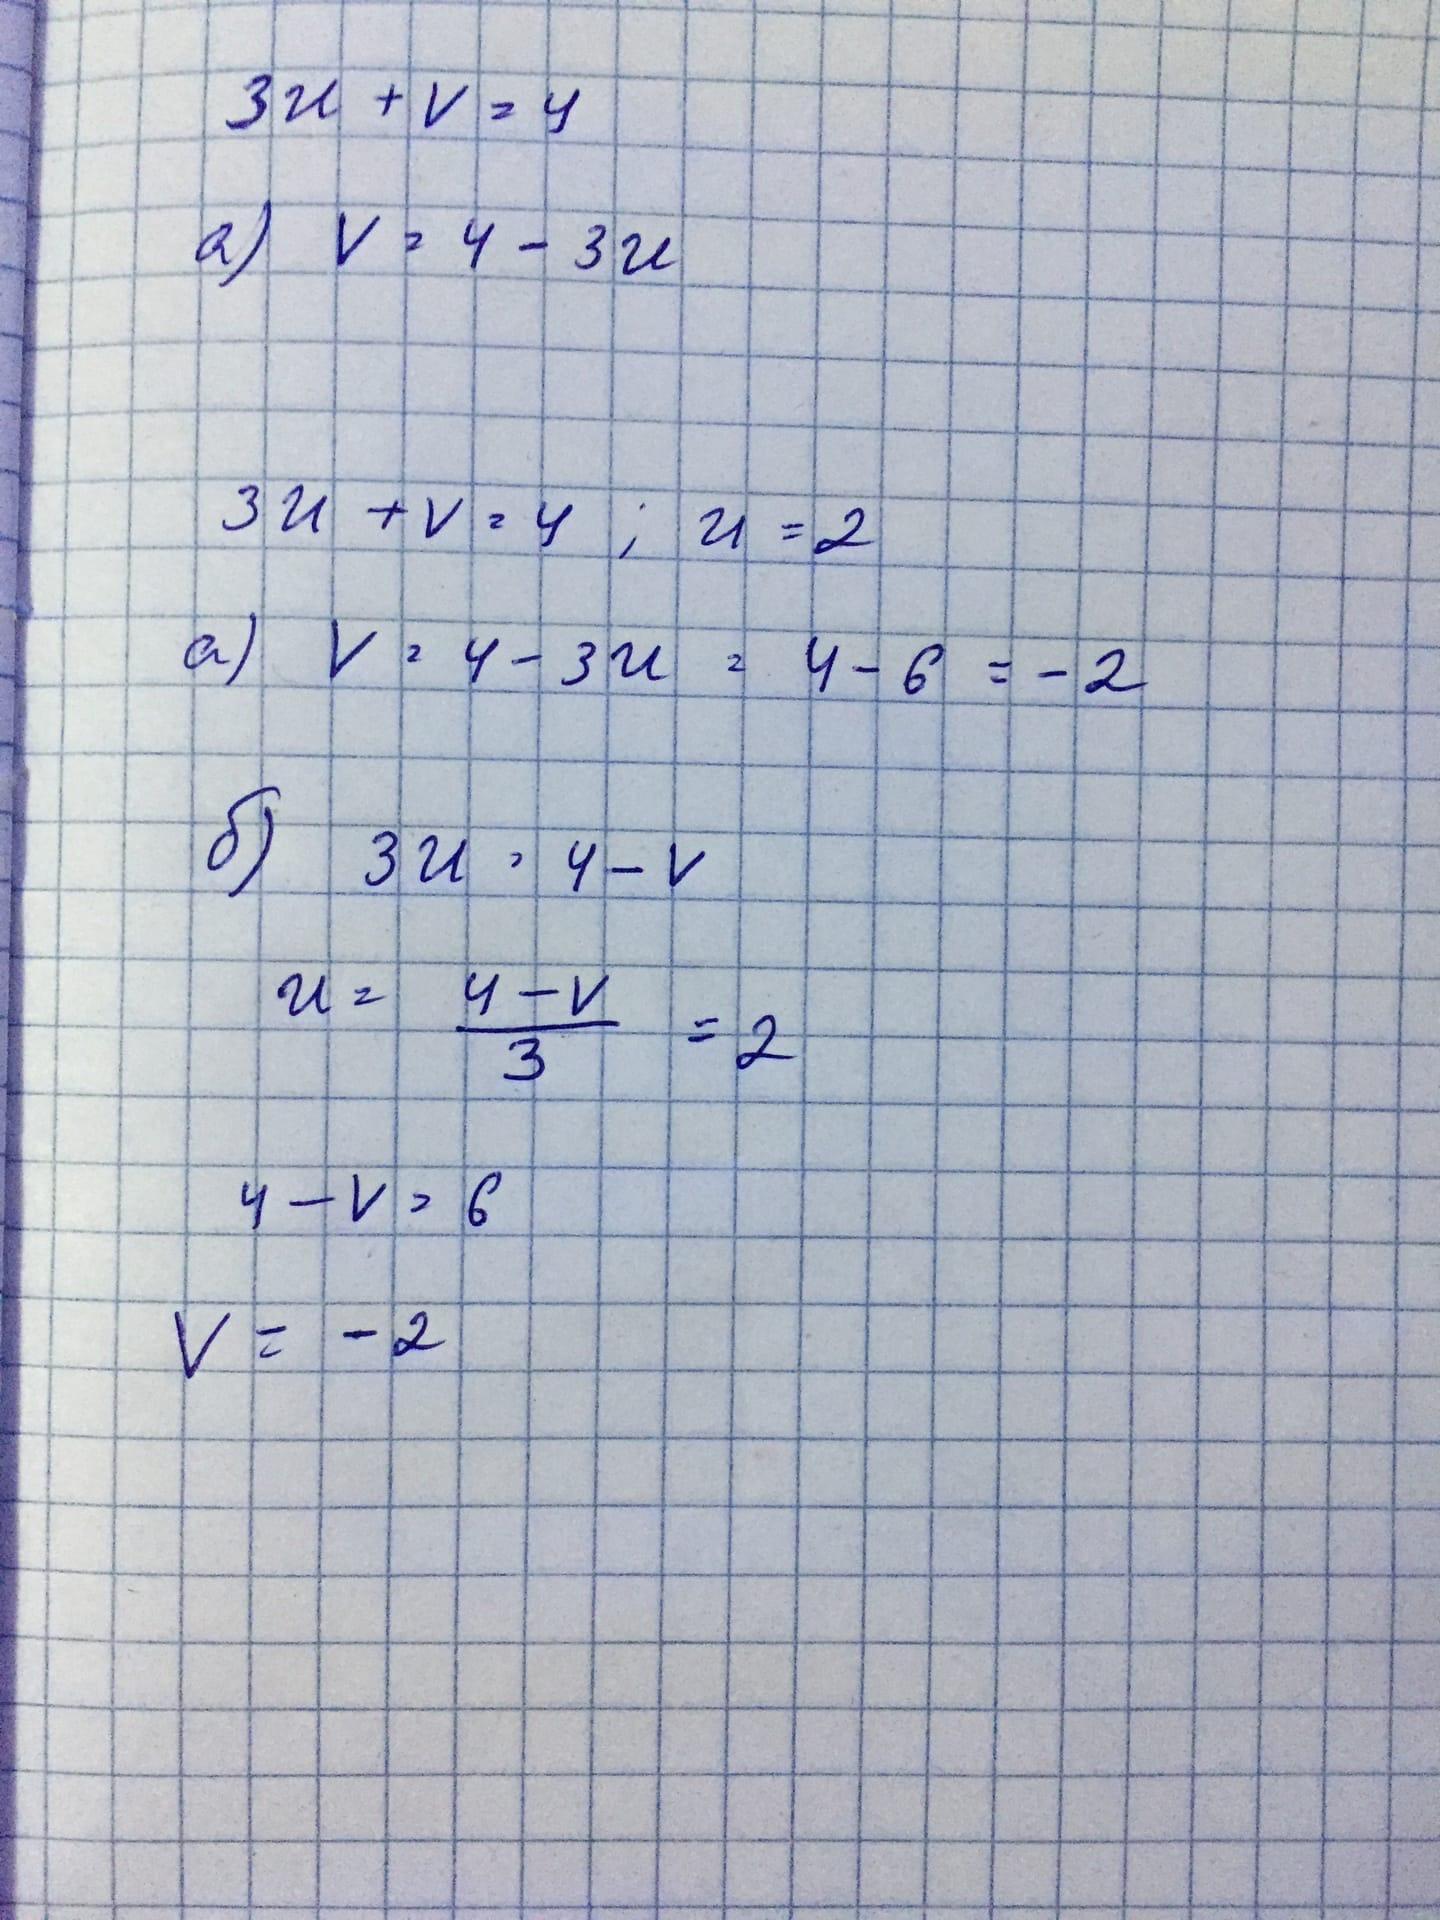 3u + v = 4
а) v = 4 - 3u
3u + v = 4 ; u = 2
а) v = 4 - 3u = 4 - 6 = -2
б) 3u = 4 - v
u = (4 - v)/3 = 2
4 - v = 6
v = -2